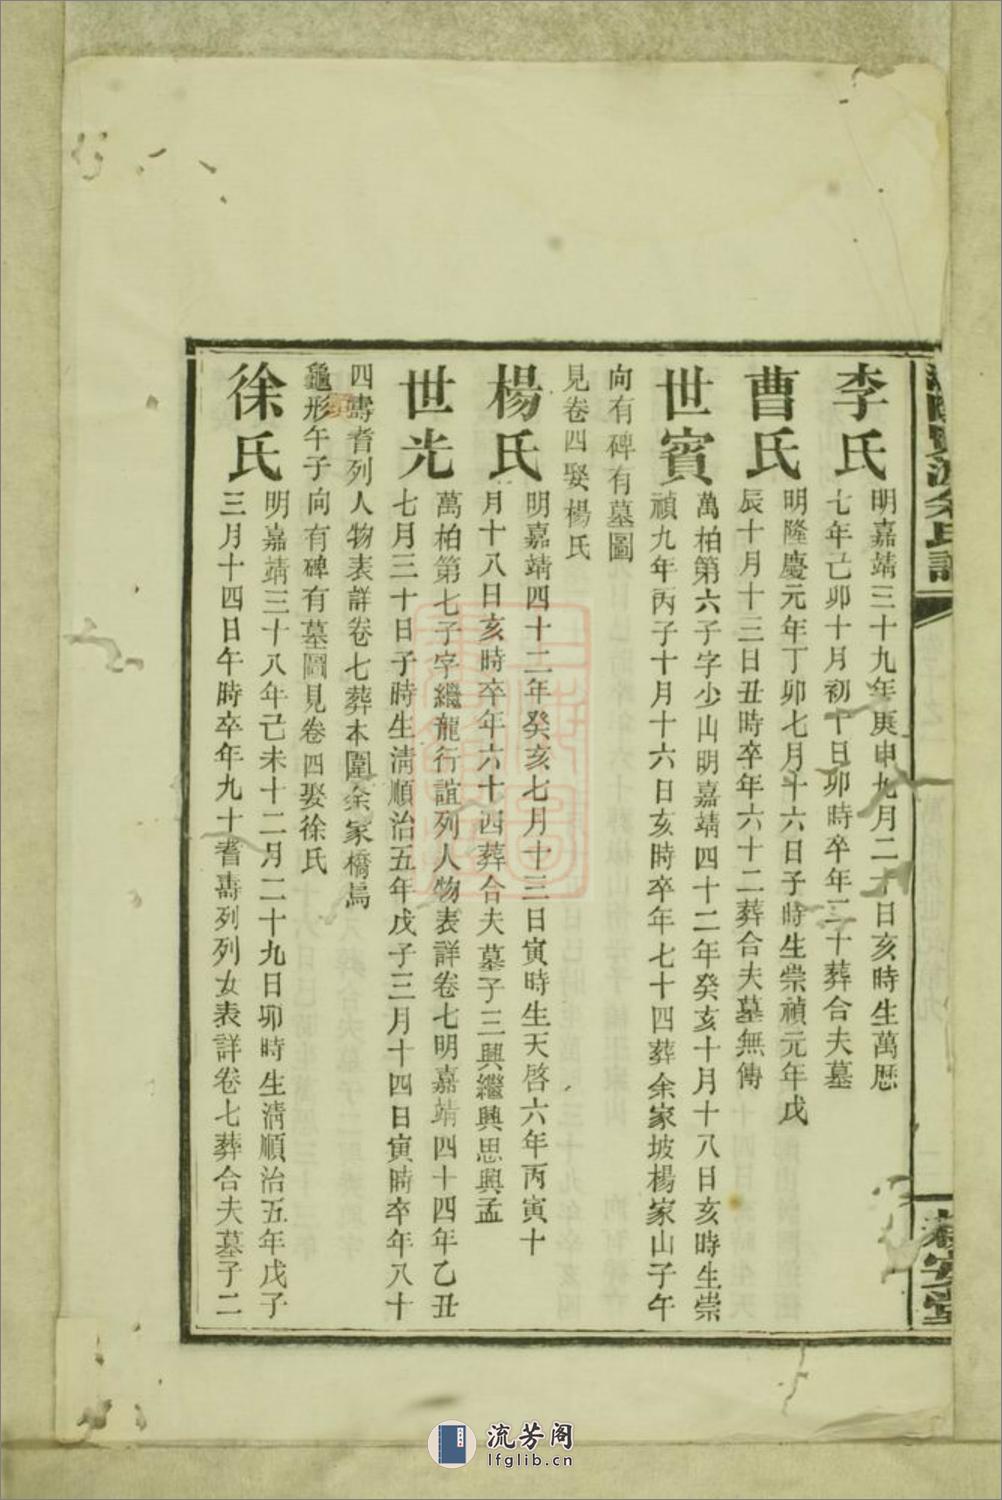 李氏
明嘉靖三十九年庚申九月二十日亥時生萬歷
七年己卯十月初十日卯時卒年二十葬合夫墓
曹氏
明隆慶元年丁卯七月十六日子時生崇禎元年戊
辰十月十三日丑時卒年六十二葬合夫墓無傳
世賓
萬柏第六子字少山明嘉靖四十二年癸亥十月十八日亥時生崇
禎九年丙子十月十六日亥時卒年七十四葬余家坡楊家山子午
向有碑有墓圖
見卷四娶楊氏
楊氏
明嘉靖四十二年癸亥七月十三日寅時生天啓六年丙寅十
月十八日亥時卒年六十四葬合夫墓子三興繼興思興孟
世光
萬柏第七子字繼龍行誼列人物表詳卷七明嘉靖四十四年乙丑
七月三十日子時生淸順治五年戊子三月十四日寅時卒年八十
四壽耆列人物表詳卷七葬本圍余家橋烏
龜形午子向有碑有墓圖見卷四娶徐氏
徐氏
明嘉靖三十八年己未十二月二十九日卯時生淸順治五年戊子
三月十四日午時卒年九十耆壽列列女表詳卷七葬合夫墓子二
余氏譜
安堂
流芳阁
lfglib.cn